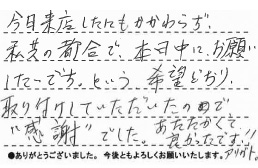 今日来店したにもかかわらず、
私共の都合で、本日中に、お願い
したいです。という希望どおり、
取り付けしていただいたので
"感謝"でした。あたたかくて
良かったです!!アリガト。
●ありがとうございました。今後ともよろしくお願いいたします。